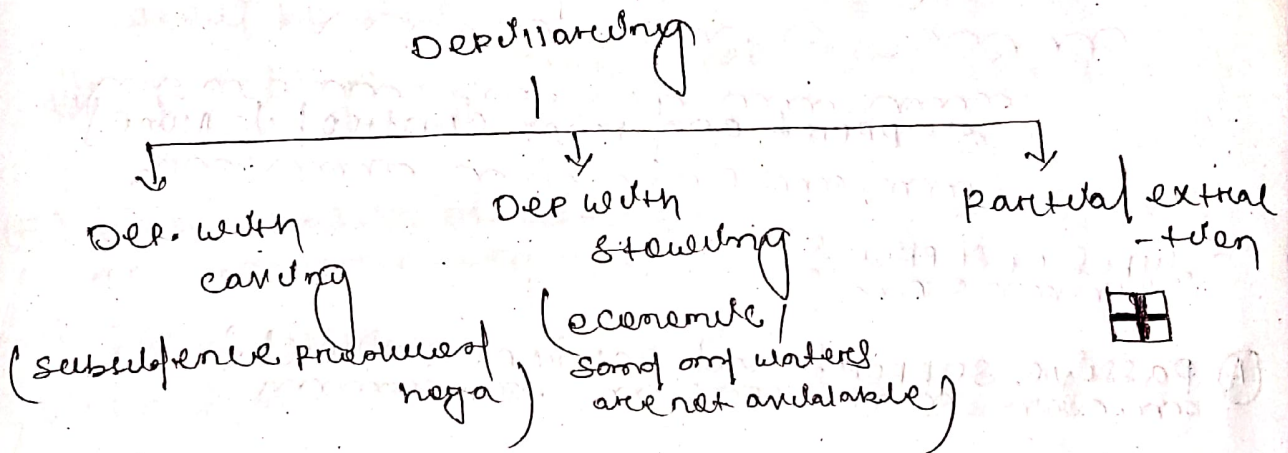 Depillaring
Dep. with
caving
(subsidence produced
hoga)
Dep with
stowing
(economic/
sand and waters
are not available)
partial extrac
-tion